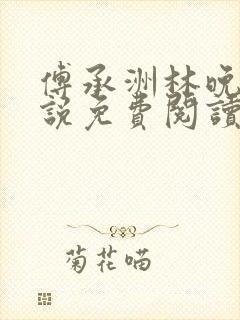 傅承洲林晚
說免費閱讀
菊花喵